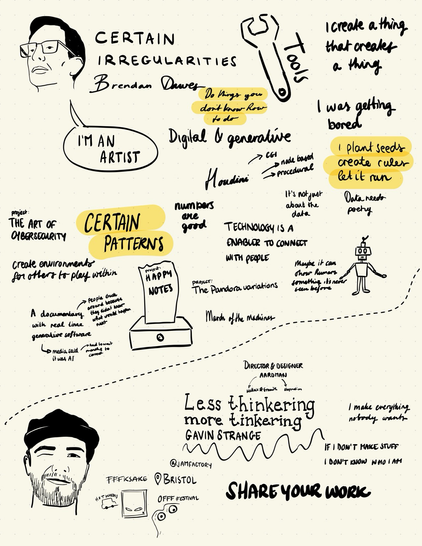 CERTAIN
IRREGULARITIES
Brendan Dawes
I'M AN
ARTIST
Tools
Do things you
don't know how
to do
Digital & generative
Houdini
CGI
node based
procedural
I create a thing
that creates
a thing
I was getting
bored
I plant seeds
create rules
let it run
It's not just
about the
data
Data needs
poetry
project:
THE ART OF
CYBERSECURITY
CERTAIN
PATTERNS
numbers
are
good
TECHNOLOGY IS A
ENABLER TO CONNECT
WITH PEOPLE
create environments
for others to play within
project:
HAPPY
NOTES
PROJECT:
The Pandora variations
March of the machines
Maybe it can
show humans
something it's never
seen before
A documentary
with real time
generative software
people
because
they didn't
what would happen
media
it was AI
DIRECTOR & DESIGNER
AARDMAN
Less thinkering
more tinkering
GAVIN STRANGE
I make everything
nobody wants
IF I DON'T MAKE STUFF
I DON'T KNOW WHO I AM
@JAMFACTORY
FFFKSAKE
BRISTOL
OFFF FESTIVAL
SHARE YOUR WORK